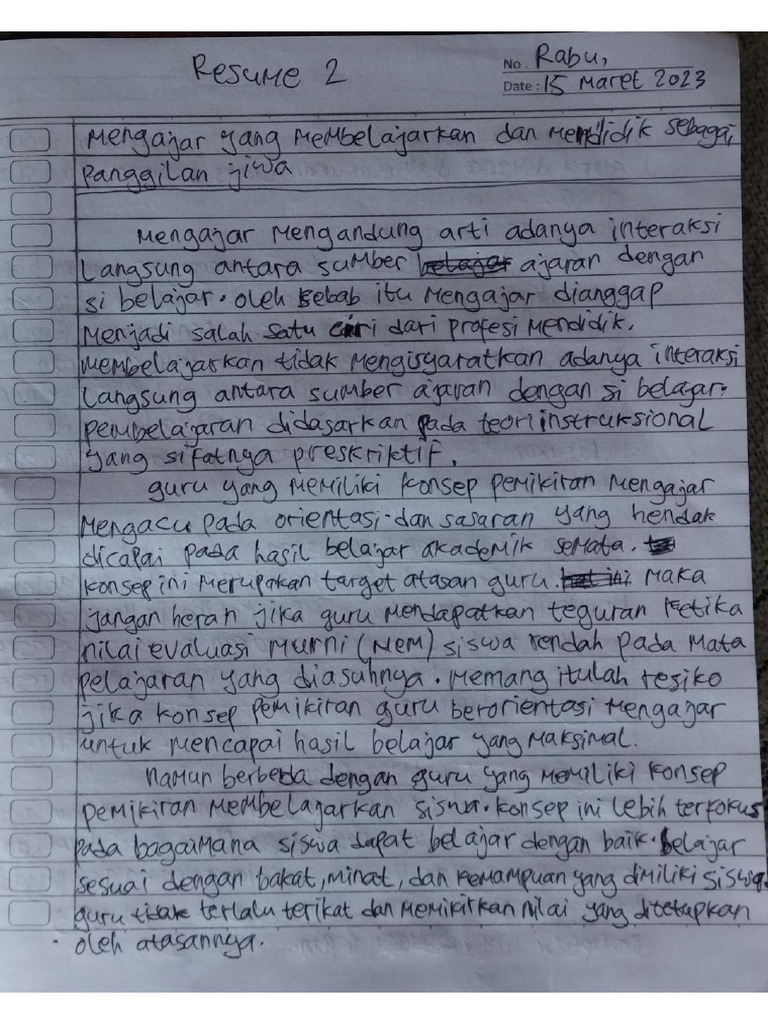 Resume 2
No. Rabu,
Date : 15 Maret 2023
Mengajar yang membelajarkan dan mendidik sebagai
panggilan jiwa
Mengajar mengandung arti adanya interaksi
langsung antara sumber ajaran dengan
si belajar. oleh sebab itu mengajar dianggap
menjadi salah satu ciri dari profesi mendidik.
membelajarkan tidak mengisyaratkan adanya interaksi
langsung antara sumber ajaran dengan si belajar.
pembelajaran didasarkan pada teori instruksional
yang sifatnya preskriktif.
guru yang memiliki konsep pemikiran mengajar
mengacu pada orientasi dan sasaran yang hendak
dicapai pada hasil belajar akademik semata.
konsep ini merupakan target atasan guru. maka
jangan heran jika guru mendapatkan teguran ketika
nilai evaluasi murni (NEM) siswa rendah pada mata
pelajaran yang diasuhnya. memang itulah resiko
jika konsep pemikiran guru berorientasi mengajar
untuk mencapai hasil belajar yang maksimal.
namun berbeda dengan guru yang memiliki konsep
pemikiran membelajarkan siswa. konsep ini lebih terfokus
pada bagaimana siswa dapat belajar dengan baik. belajar
sesuai dengan bakat, minat, dan kemampuan yang dimiliki siswa.
guru tidak terlalu terikat dan memikirkan nilai yang ditetapkan
oleh atasannya.